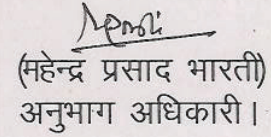 (महेन्द्र प्रसाद भारती)
अनुभाग अधिकारी।